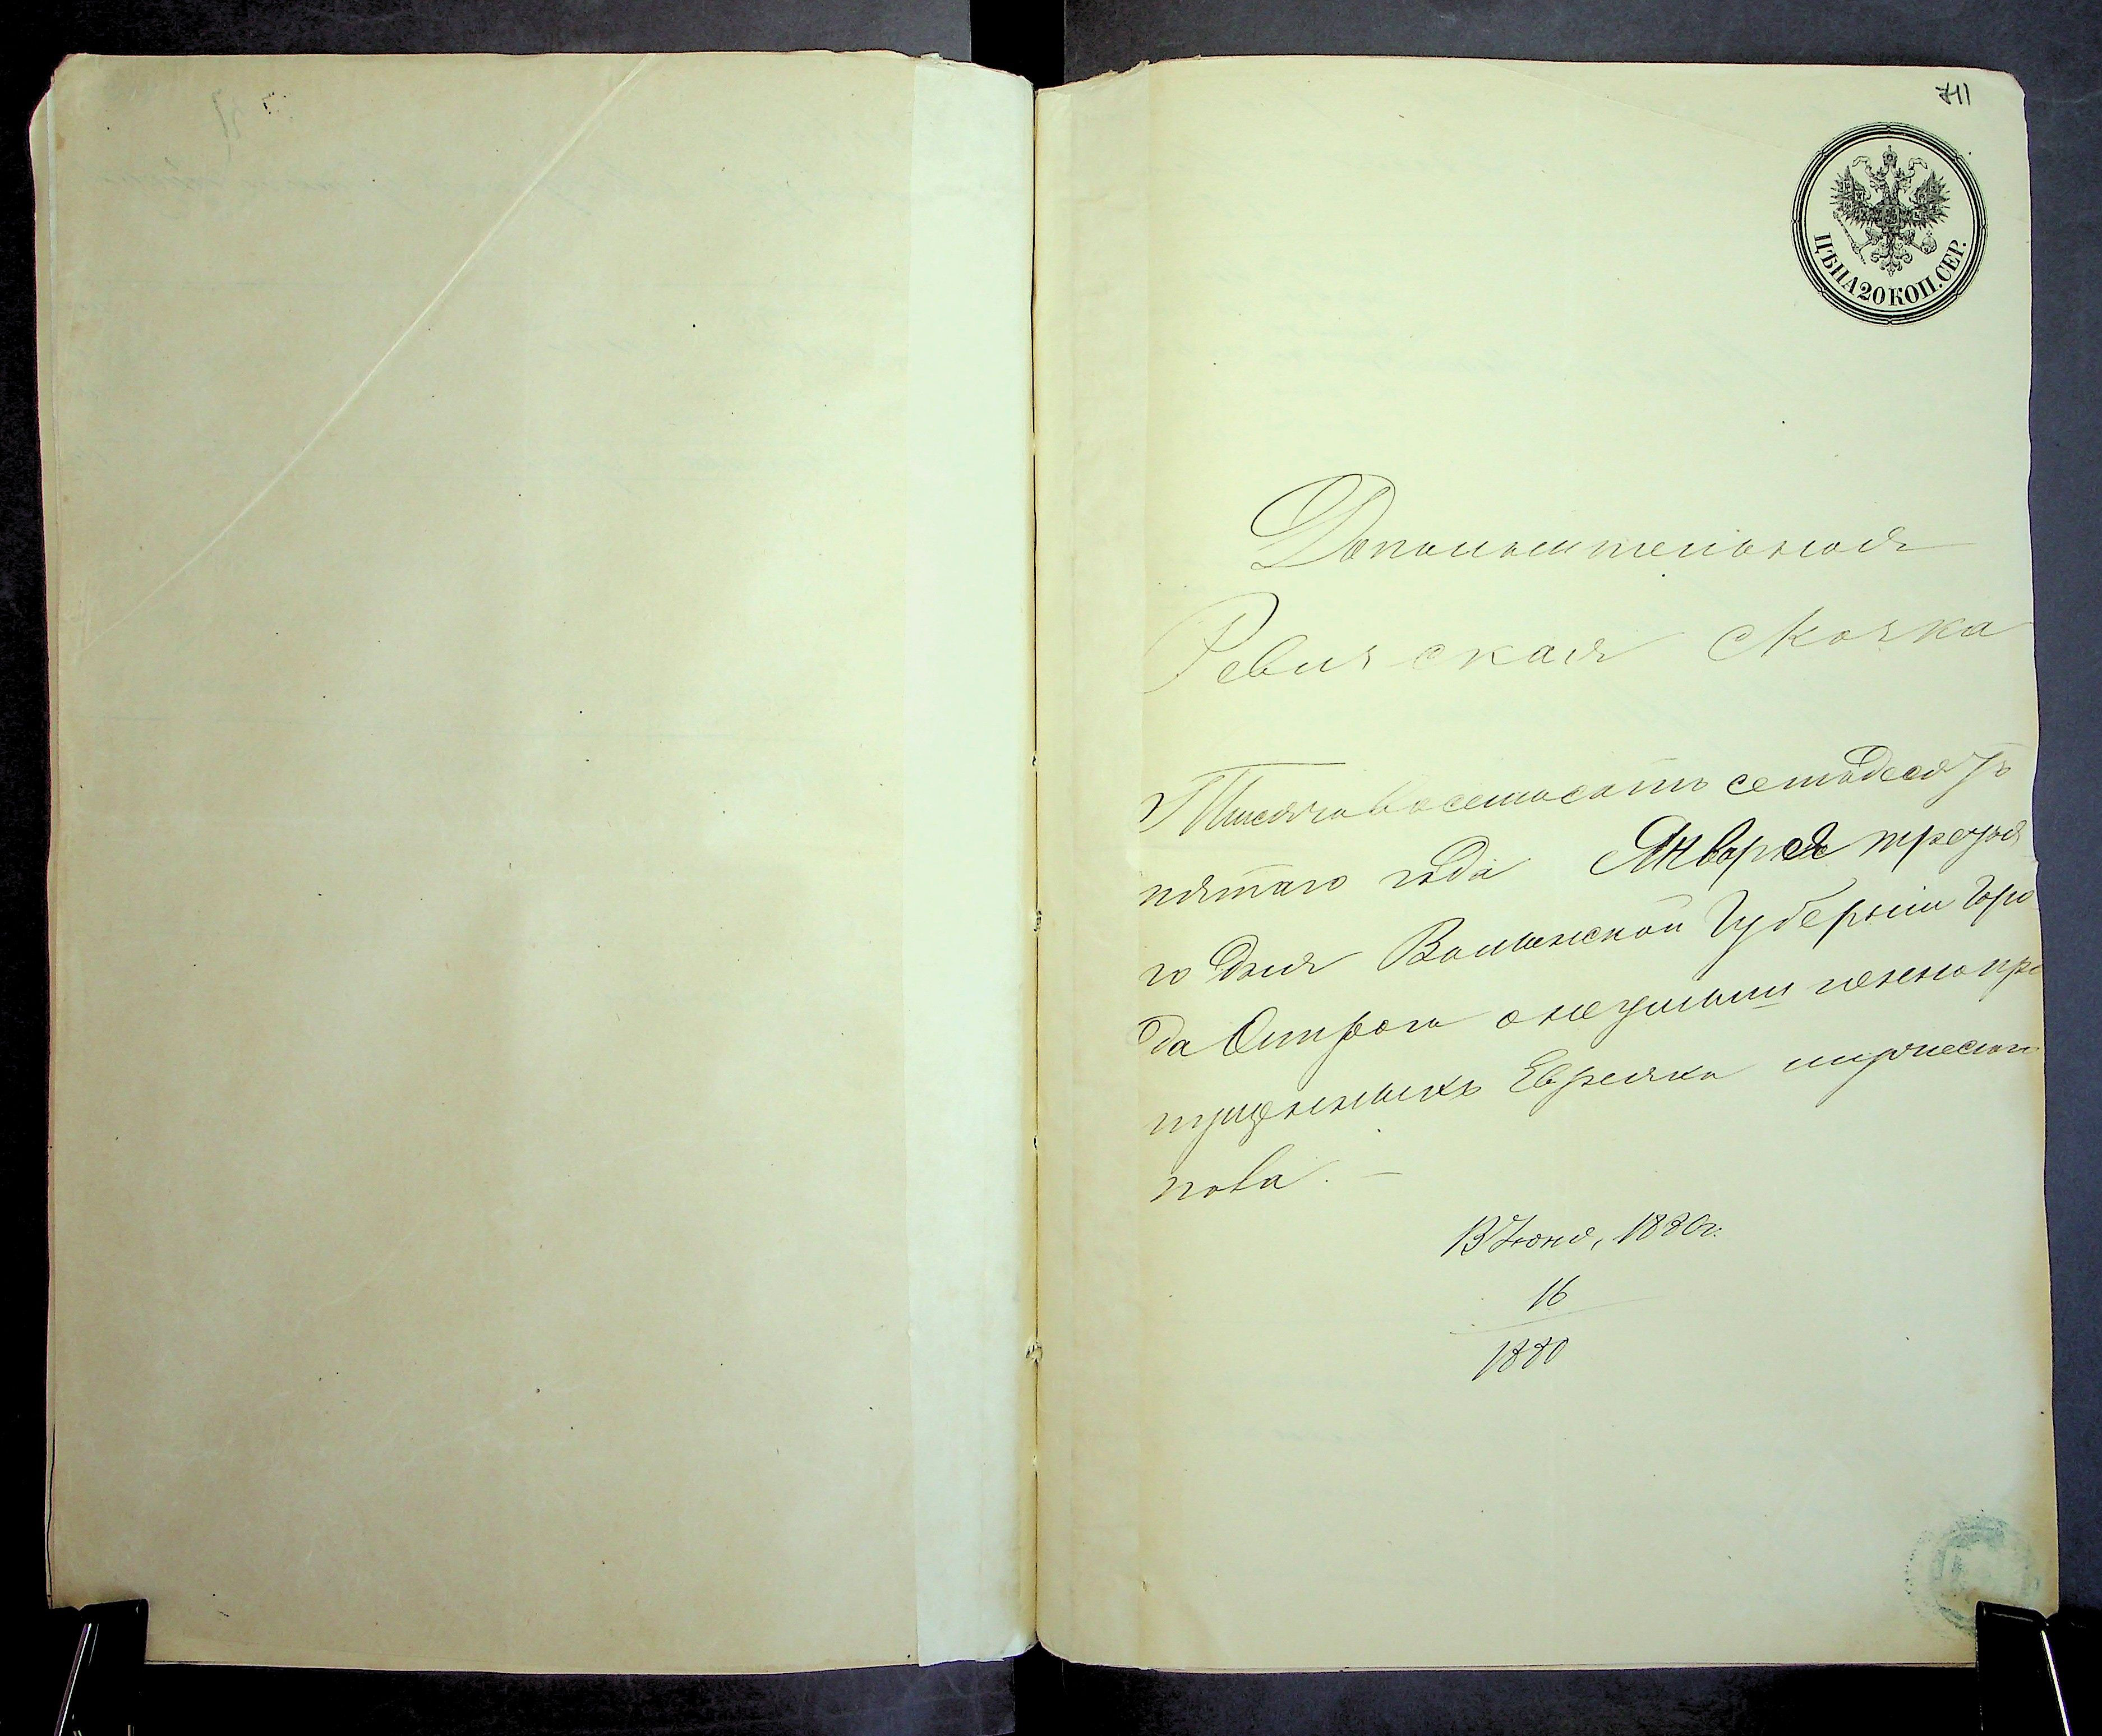 711
ЦѢНА 20 КОП. СЕР.
Дополнительная
Ревизская сказка
Тысяча восемьсотъ семьдесятъ
пятаго года Января третья
го дня Волынской Губерніи Горо
да Острога о неумышленно про
пущенныхъ Евреяхъ
13 Іюня, 1880 г.
16
1880